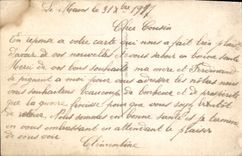 Le Mans le 31 Xbre 1917
Cher Cousin
En reponse a votre carte qui nous a fait bien plaisir
d'avoir de vos nouvelles et vous savoir en bonne santé
Merci de vos bons souhaits ma mère et Fernand
se joignent a moi pour vous adresser les nôtres nous
vous souhaitons beaucoup de bonheur et de prosperité
que la guerre finisse pour que vous soyez bientôt
de retour. Nous sommes en bonne santé je termine
en vous embrassant en attendant le plaisir
de vous voir
Clémentine